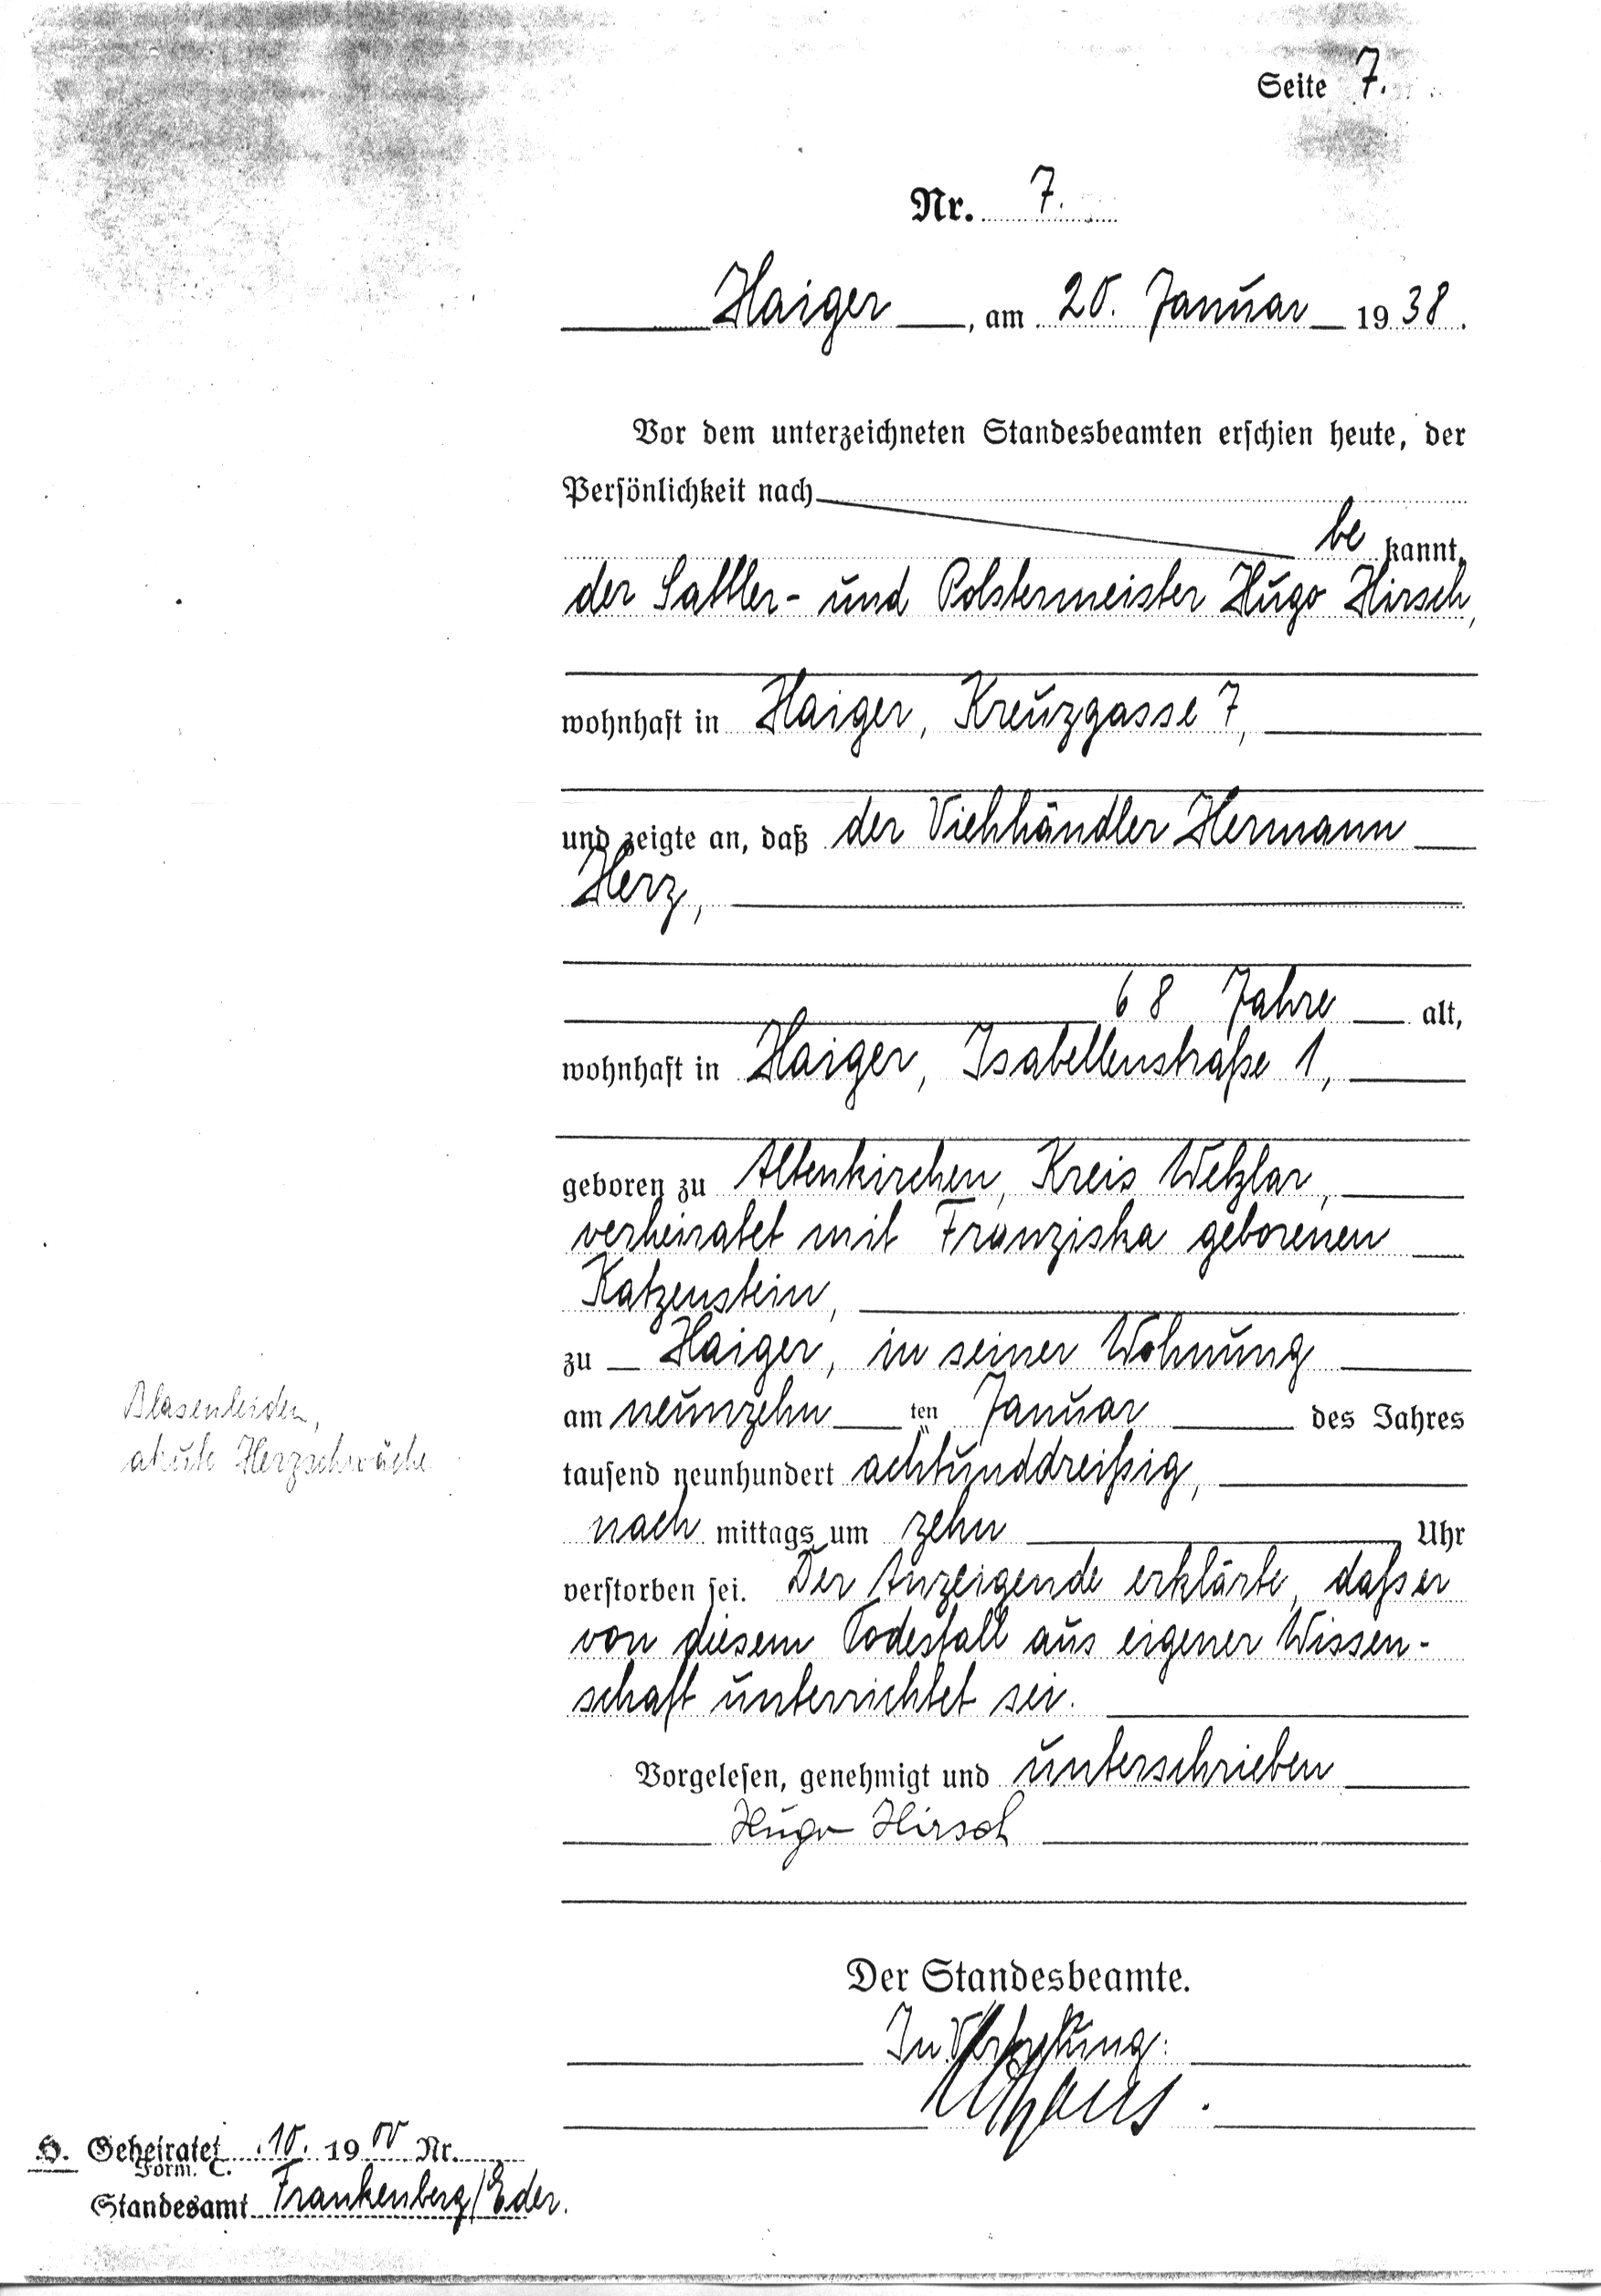 Seite 7.
Nr. 7.
Haiger, am 20. Januar 1938.
Vor dem unterzeichneten Standesbeamten erschien heute, der
Persönlichkeit nach
be kannt,
der Sattler- und Polstermeister Hugo Hirsch,
wohnhaft in Haiger, Kreuzgasse 7,
und zeigte an, daß der Viehhändler Hermann
Herz,
68 Jahre alt,
wohnhaft in Haiger, Isabellenstraße 1,
geboren zu Altenkirchen, Kreis Wetzlar,
verheiratet mit Franziska geborenen
Katzenstein,
zu Haiger, in seiner Wohnung
am neunzehn ten Januar des Jahres
tausend neunhundert achtunddreißig,
nach mittags um zehn Uhr
verstorben sei. Der Anzeigende erklärte, daß er
von diesem Todesfall aus eigener Wissen-
schaft unterrichtet sei.
Vorgelesen, genehmigt und unterschrieben
Hugo Hirsch
Der Standesbeamte.
In Vertretung:
Blasenleiden,
akute Herzschwäche
H. Geheiratet 10. 1900 Nr.
Form. C.
Standesamt Frankenberg/Eder.